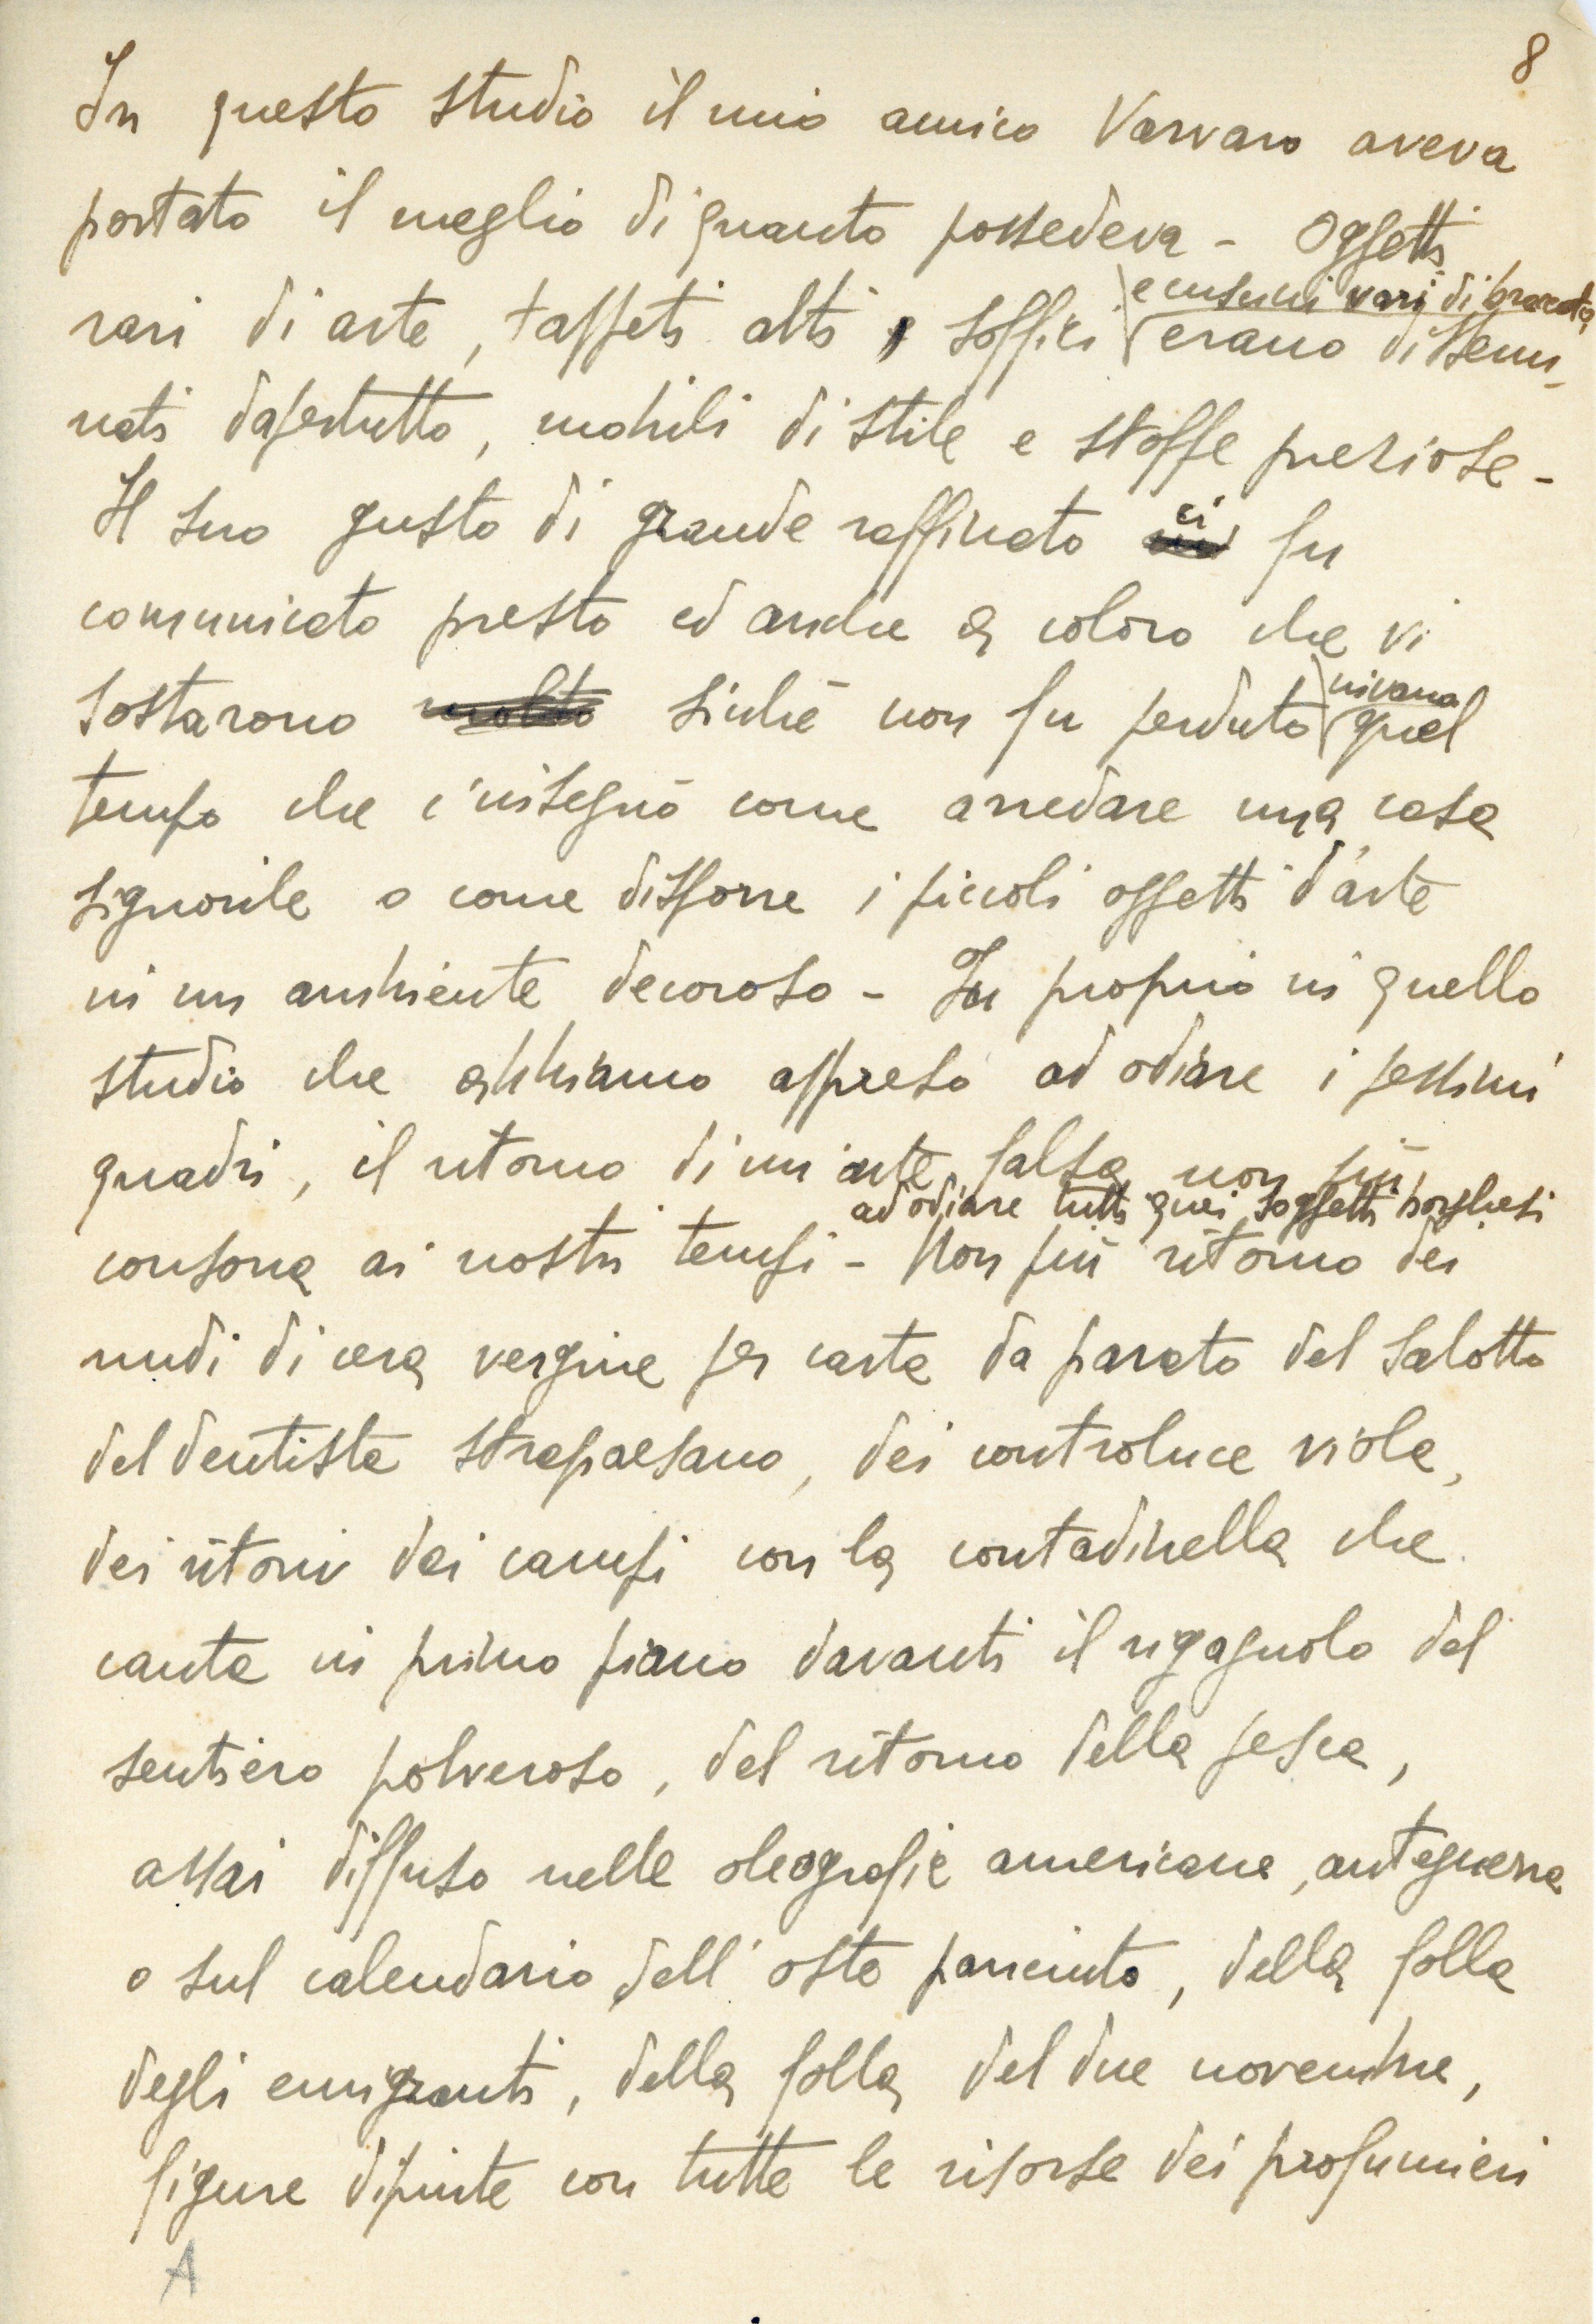 8
In questo studio il mio amico Varvaro aveva
portato il meglio di quanto possedeva - Oggetti
e cuscini vari di broccato
rari di arte, tappeti alti, soffici erano dissemi-
nati dapertutto, mobili di stile e stoffe preziose -
Il suo gusto di grande raffinato ci fu
comunicato presto ed anche a coloro che vi
sostarono molto sicché non fu perduto invano quel
tempo che c'insegnò come arredare una casa
signorile o come disporre i piccoli oggetti d'arte
in un ambiente decoroso - Fu proprio in quello
studio che abbiamo appreso ad odiare i pessimi
quadri, il ritorno di un'arte falsa non più
ad odiare tutti quei soggetti borghesi
consona ai nostri tempi - Non più ritorno dei
nudi di cera vergine per carta da parato del salotto
del dentista strapaesano, dei controluce viola,
dei ritorni dai campi con la contadinella che
canta in primo piano davanti il rigagnolo del
sentiero polveroso, del ritorno della pesca,
assai diffuso nelle oleografie americane, anteguerra
o sul calendario dell'oste panciuto, della folla
degli emigranti, della folla del due novembre,
figure dipinte con tutte le risorse dei profumieri
A